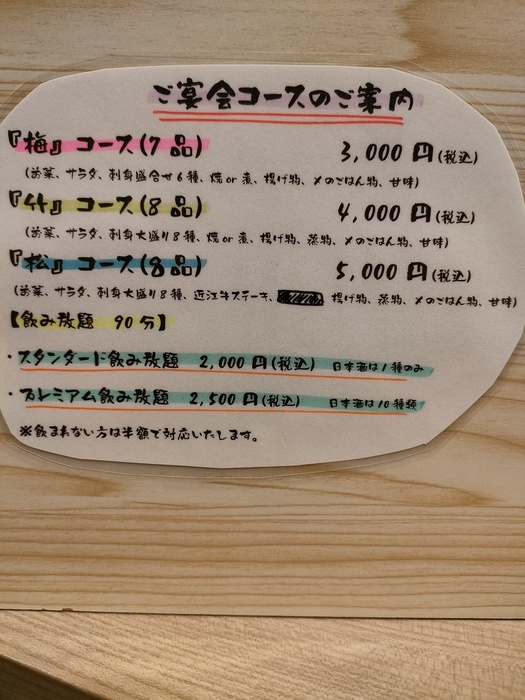 ご宴会コースのご案内
『梅』コース(7品) 3,000円(税込)
(お菜、サラダ、刺身盛合せ6種、焼or煮、揚げ物、〆のごはん物、甘味)
『竹』コース(8品) 4,000円(税込)
(お菜、サラダ、刺身大盛り8種、焼or煮、揚げ物、蒸物、〆のごはん物、甘味)
『松』コース(8品) 5,000円(税込)
(お菜、サラダ、刺身大盛り8種、近江牛ステーキ、揚げ物、蒸物、〆のごはん物、甘味)
【飲み放題 90分】
・スタンダード飲み放題 2,000円(税込) 日本酒は1種のみ
・プレミアム飲み放題 2,500円(税込) 日本酒は10種類
※飲まれない方は半額で対応いたします。